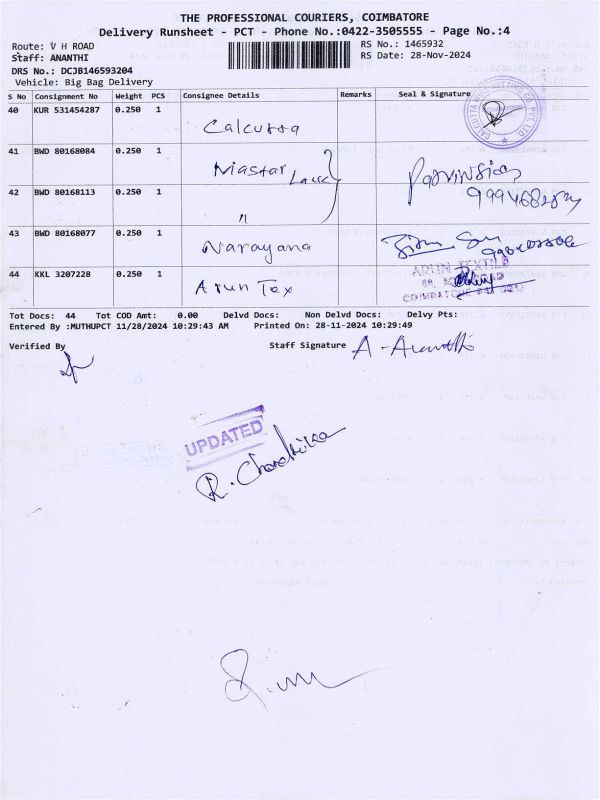 THE PROFESSIONAL COURIERS, COIMBATORE
Delivery Runsheet - PCT - Phone No.:0422-3505555 - Page No.:4
Route: V H ROAD
RS No.: 1465932
Staff: ANANTHI
RS Date: 28-Nov-2024
DRS No.: DCJB146593204
Vehicle: Big Bag Delivery
S No Consignment No Weight PCS Consignee Details Remarks Seal & Signature
40 KUR 531454287 0.250 1 Calcutta
41 BWD 80168084 0.250 1 Mastar
42 BWD 80168113 0.250 1 "
43 BWD 80168077 0.250 1 Narayana
44 KKL 3207228 0.250 1 Arun Tex
ARUN TEXTILE
Tot Docs: 44 Tot COD Amt: 0.00 Delvd Docs: Non Delvd Docs: Delvy Pts:
Entered By :MUTHUPCT 11/28/2024 10:29:43 AM Printed On: 28-11-2024 10:29:49
Verified By Staff Signature A-Ananthi
UPDATED
R. Chandrika